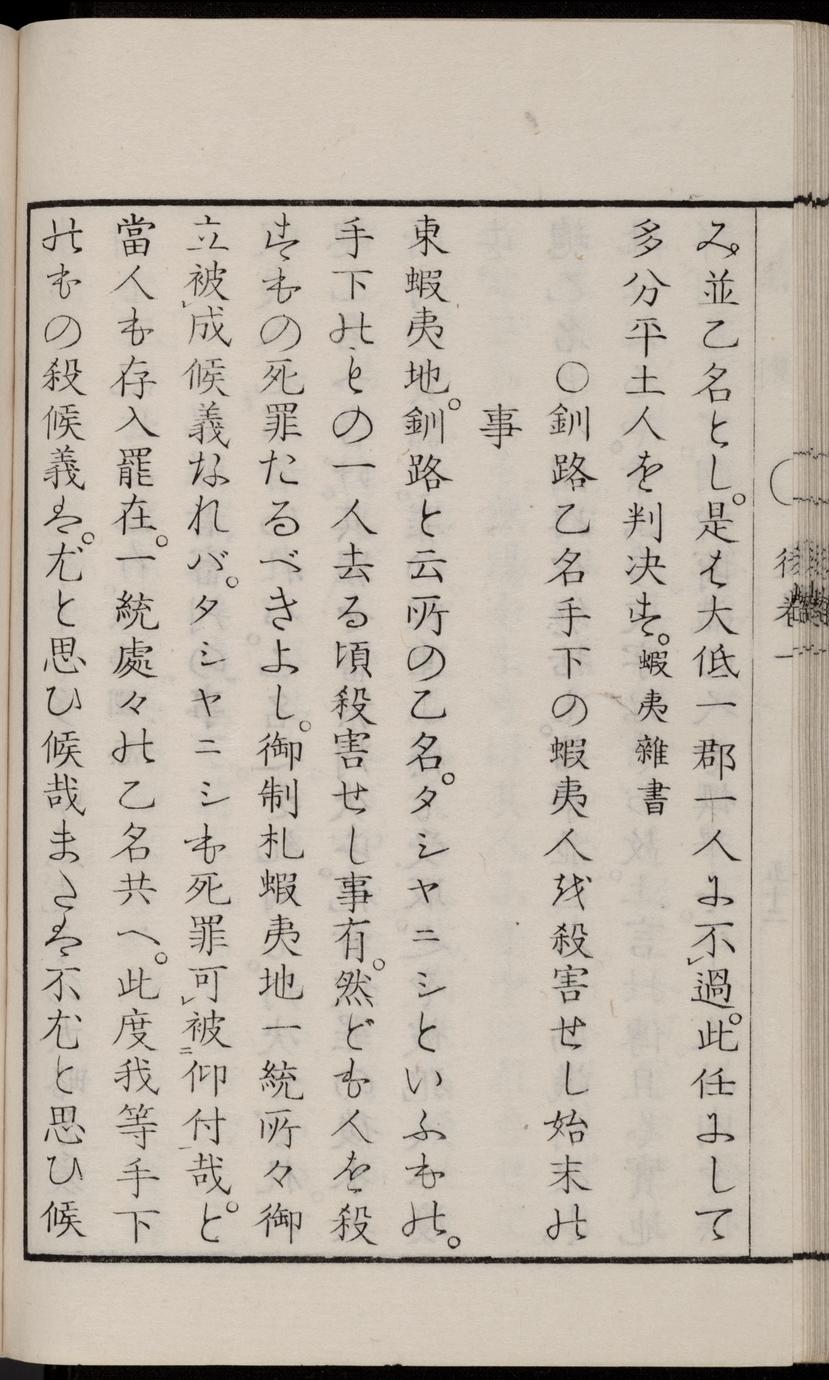 み。並乙名とし。是は大低一郡一人に不過。此任にして
多分平土人を判决す。蝦夷雜書
〇釧路乙名手下の蝦夷人を殺害せし始末の
事
東蝦夷地。釧路と云所の乙名。タシヤニシといふもの。
手下のもの一人去る頃殺害せし事有。然ども人を殺
すもの死罪たるべきよし。御制札蝦夷地一統所々御
立被成候義なれバ。タシヤニシも死罪可被仰付哉と。
當人も存入罷在。一統處々の乙名共へ。此度我等手下
のもの殺候義は。尤と思ひ候哉または不尤と思ひ候
後卷一